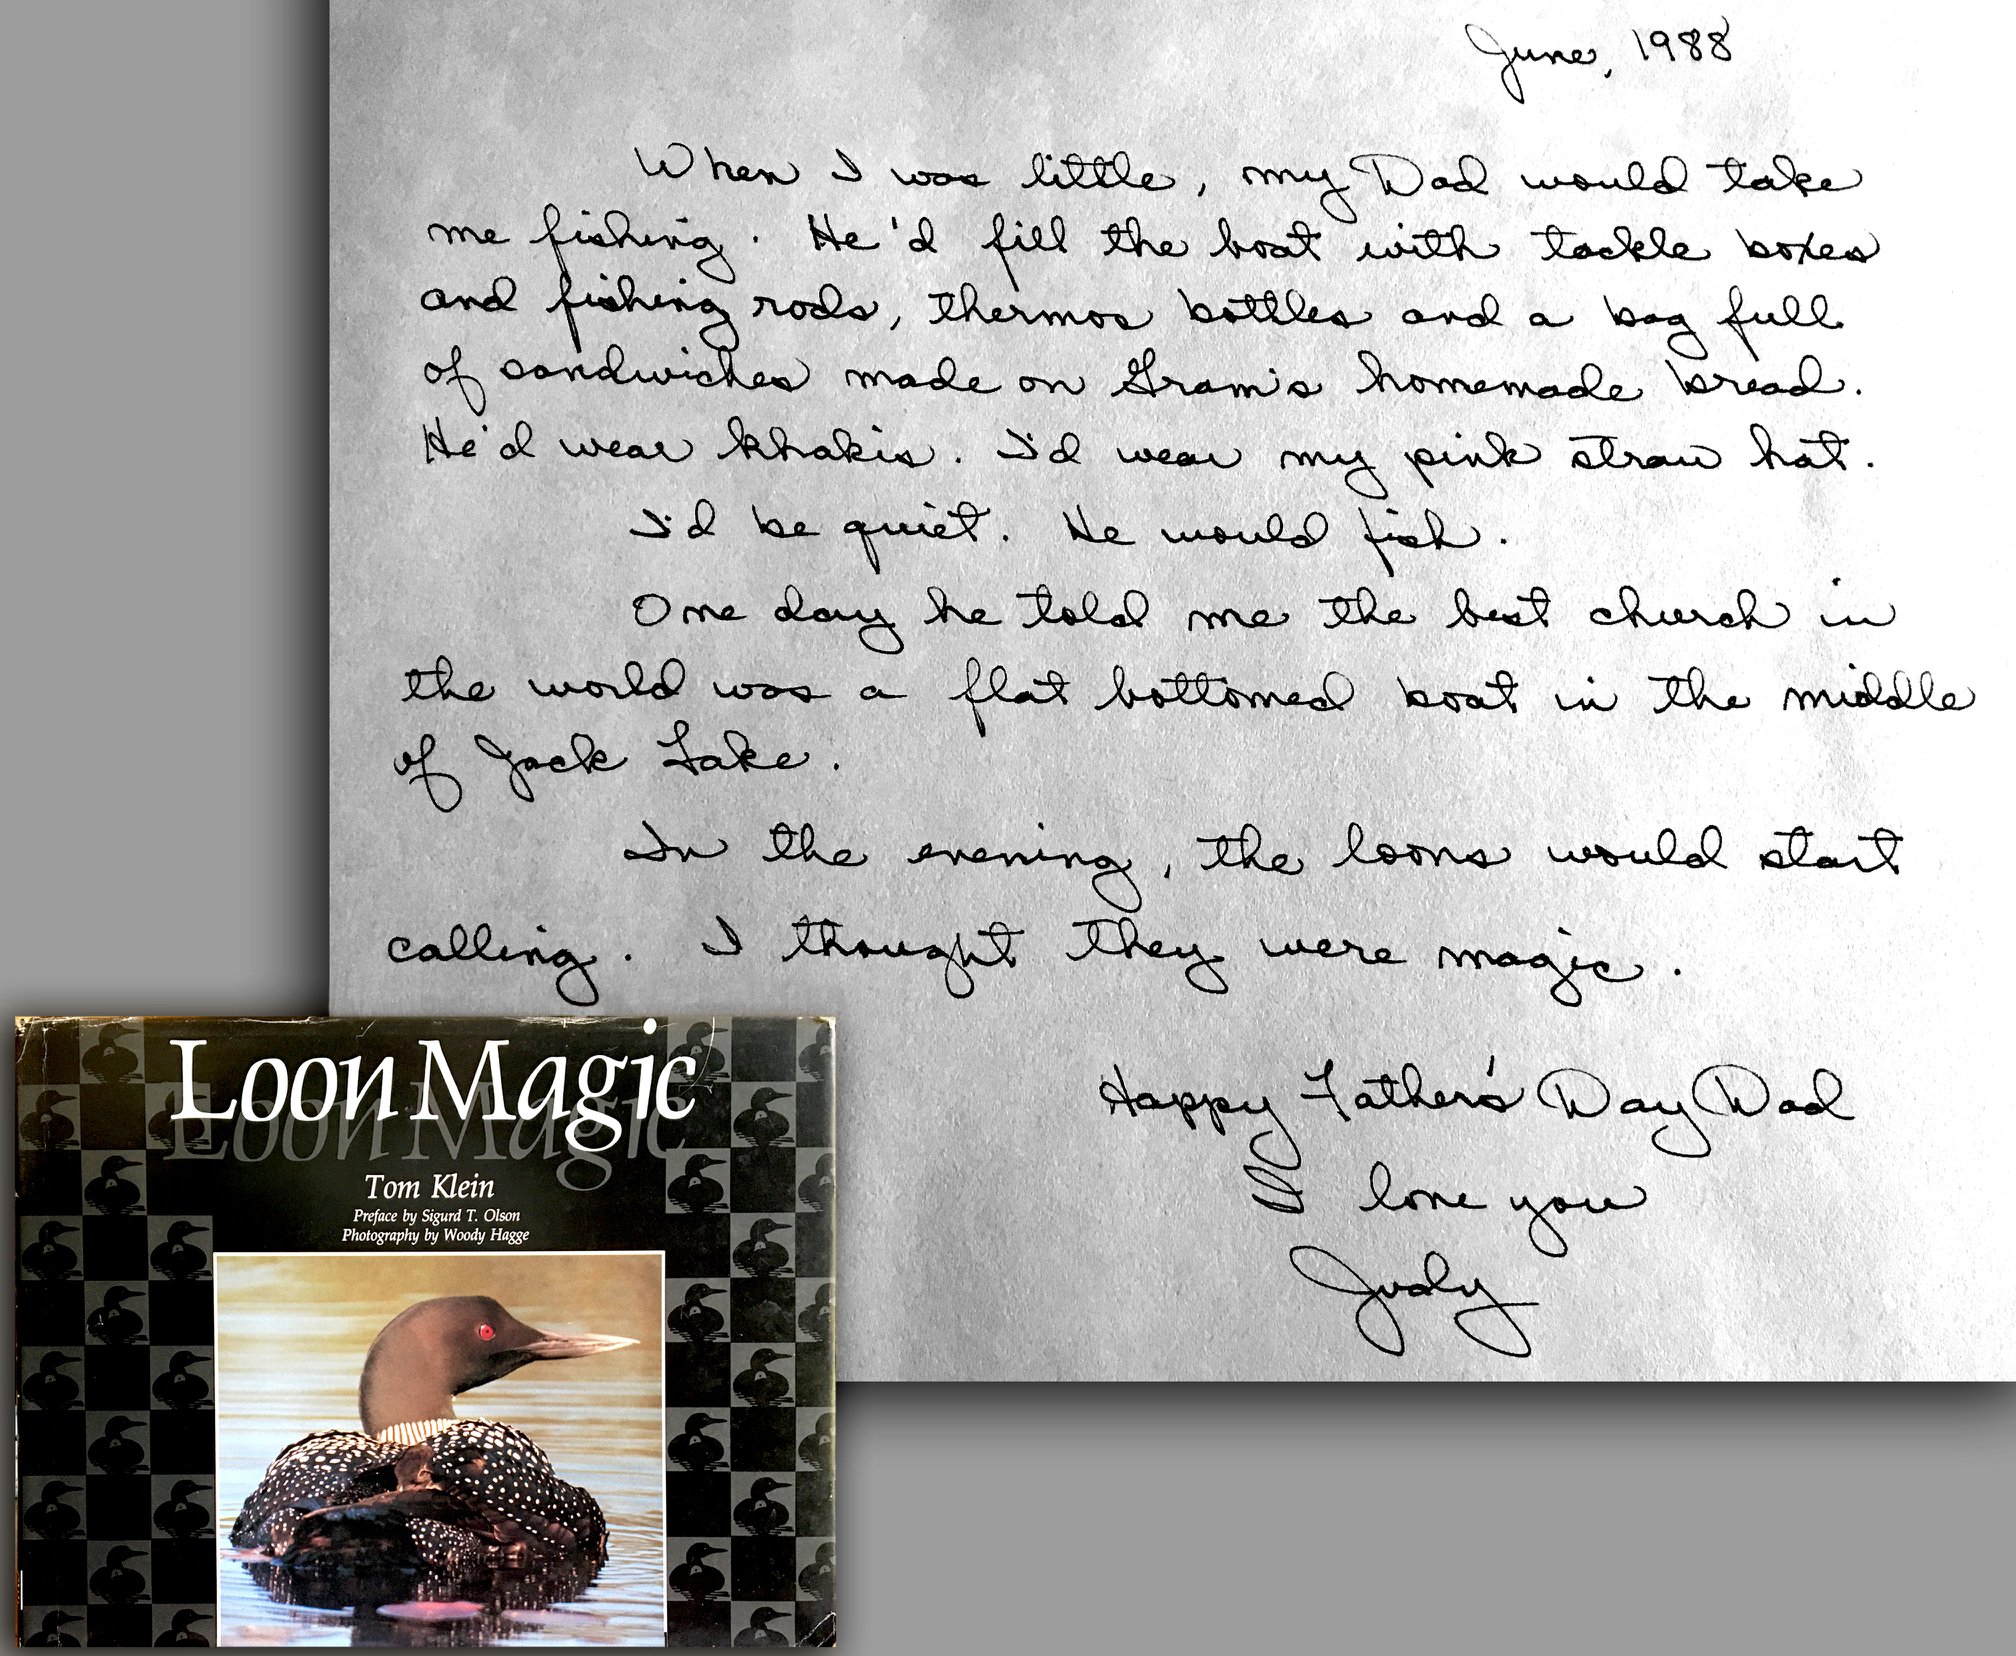 June, 1988
When I was little, my Dad would take
me fishing. He'd fill the boat with tackle boxes
and fishing rods, thermos bottles and a bag full
of sandwiches made on Gram's homemade bread.
He'd wear khakis. I'd wear my pink straw hat.
I'd be quiet. He would fish.
One day he told me the best church in
the world was a flat bottomed boat in the middle
of Jack Lake.
In the evening, the loons would start
calling. I thought they were magic.
Happy Father's Day Dad
I love you
Judy
Loon Magic
Tom Klein
Preface by Sigurd T. Olson
Photography by Woody Hagge